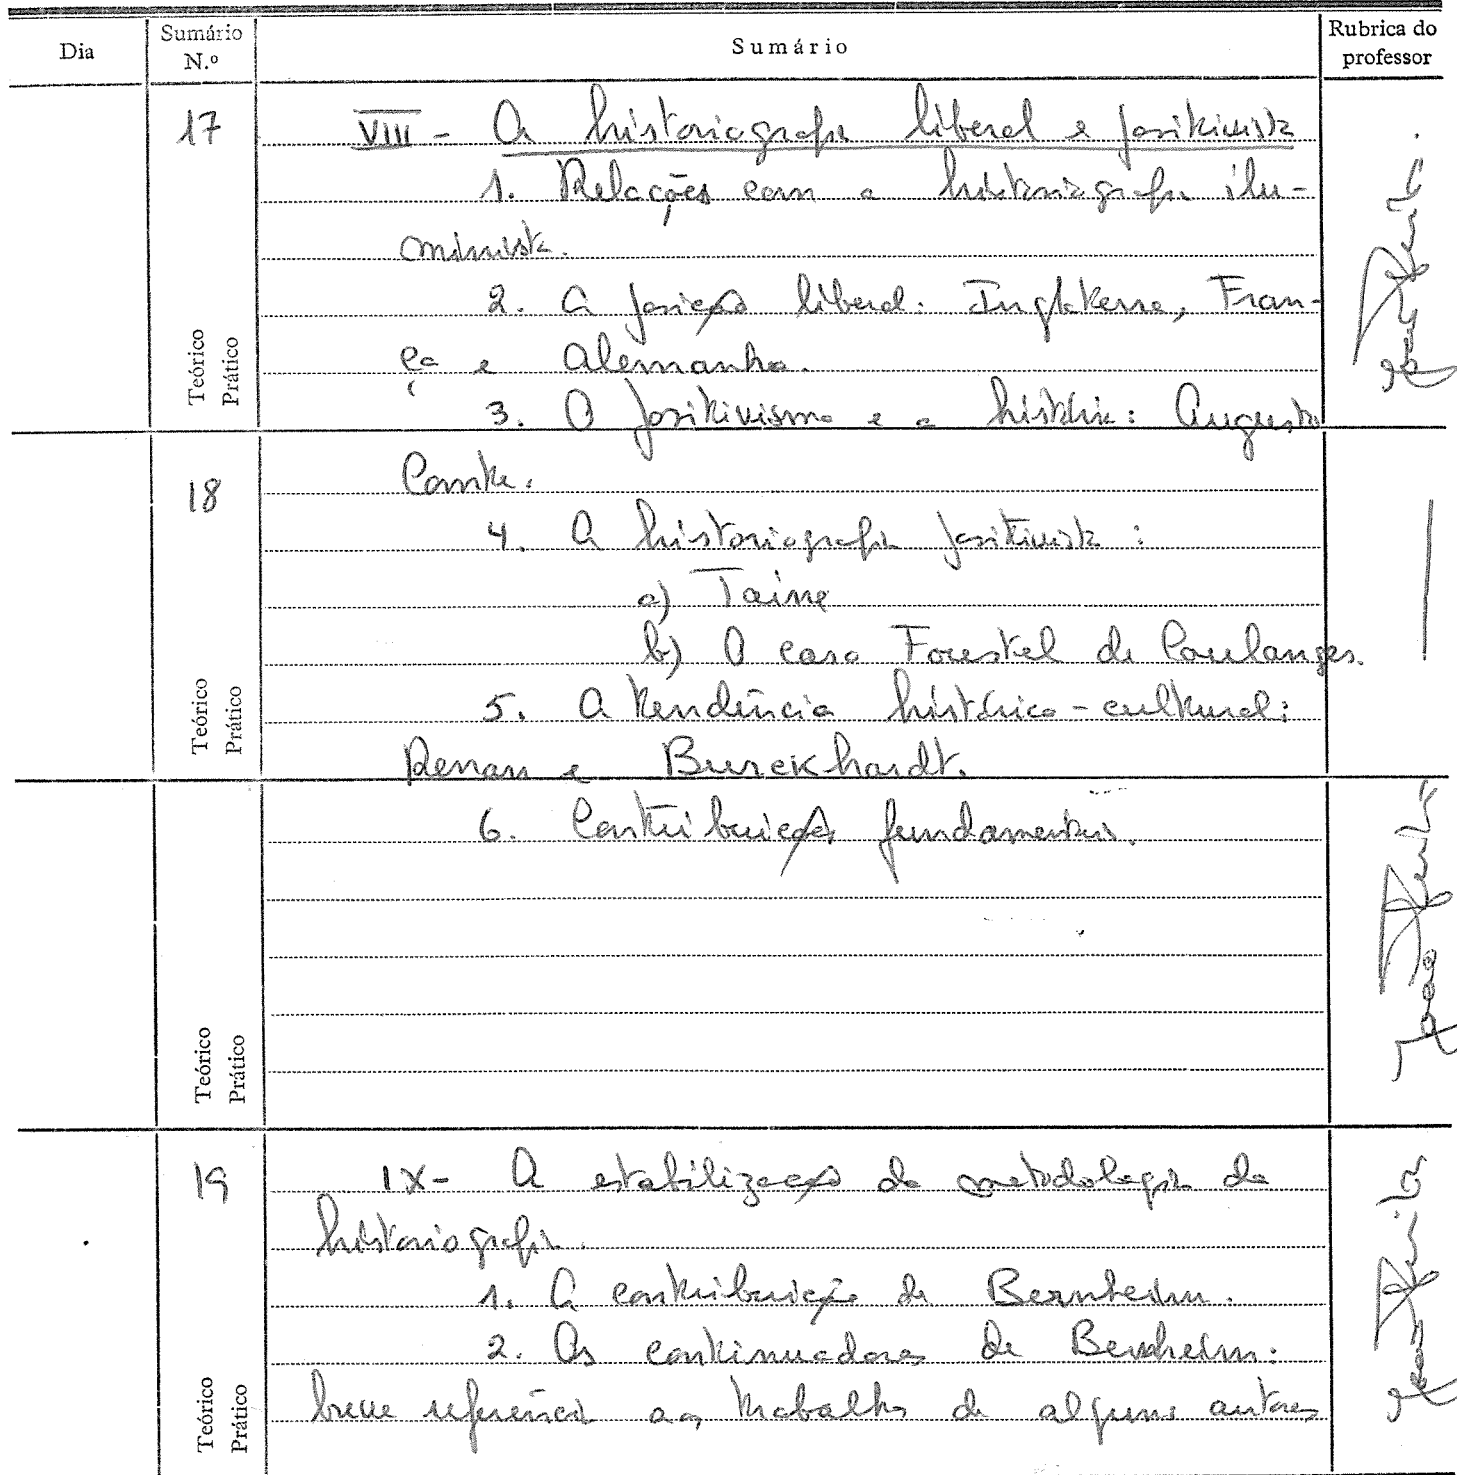 Dia
Sumário
N.º
Sumário
Rubrica do
professor
17
VIII - A historiografia liberal e positivista
1. Relações com a historiografia ilu-
minista.
2. A posição liberal: Inglaterra, Fran-
ça e Alemanha.
3. O positivismo e a história: Augusto
Teórico
Prático
18
Comte.
4. A historiografia positivista:
a) Taine
b) O caso Foustel de Coulanges.
5. A tendência histórico-cultural:
Renan e Burckhardt.
Teórico
Prático
6. Contribuições fundamentais.
Teórico
Prático
19
IX - A estabilização da metodologia da
historiografia.
1. A contribuição de Bernheim.
2. Os continuadores de Bernheim:
breve referência aos trabalhos de alguns autores
Teórico
Prático